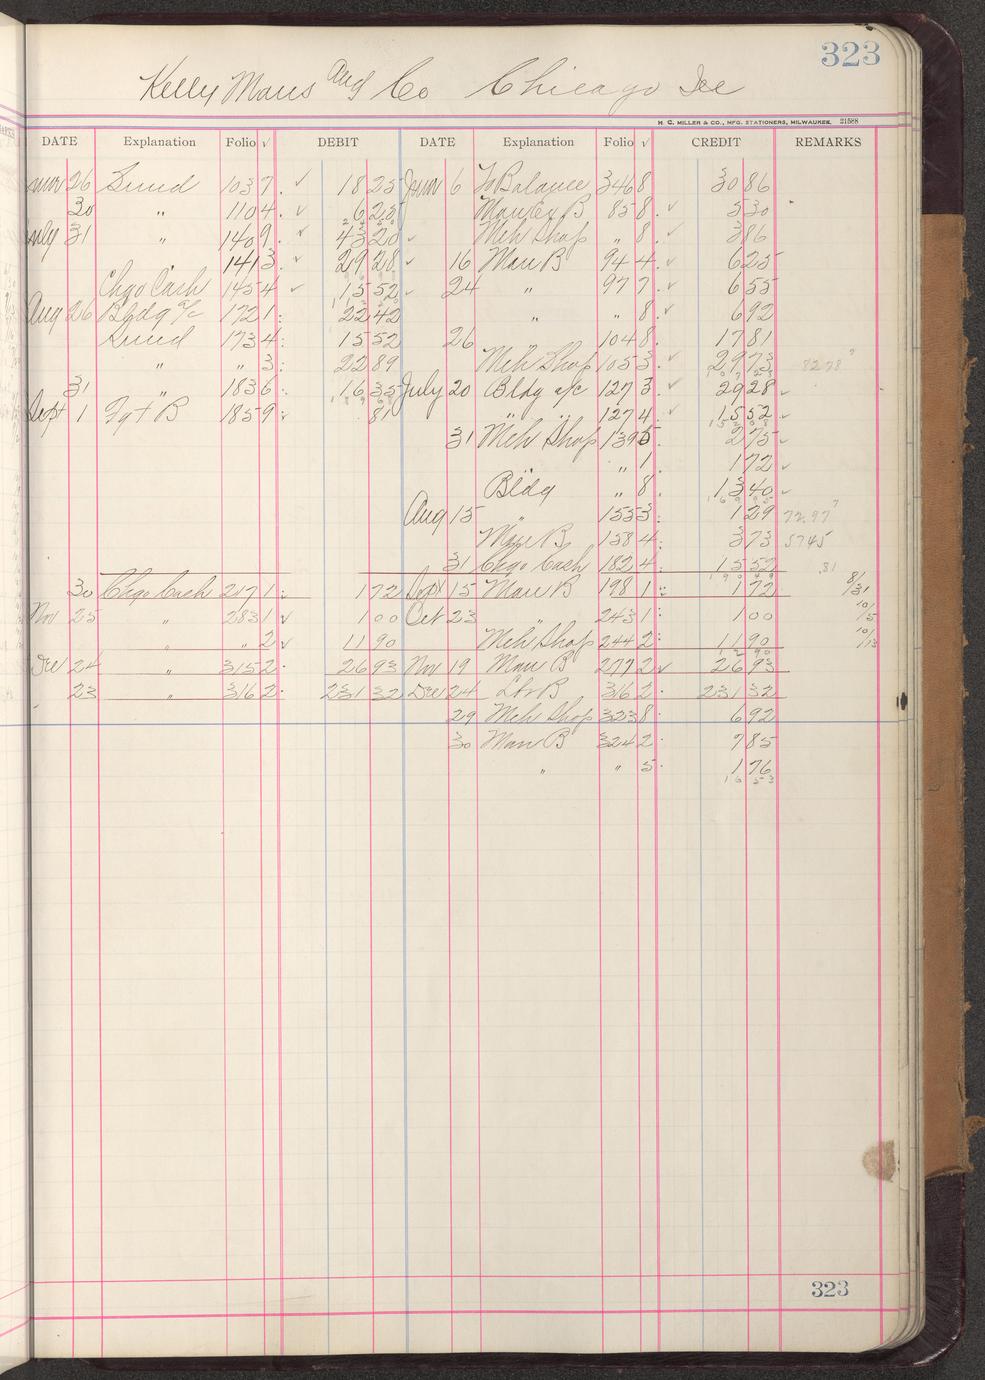 323
Kelly Maus and Co Chicago Ill
H. C. MILLER & CO., MFG. STATIONERS, MILWAUKEE. 21588
DATE Explanation Folio √ DEBIT DATE Explanation Folio √ CREDIT REMARKS
26 Sund 1037 ✓ 18 25 June 6 To Balance 3468 30 86
30 " 1104 ✓ 6 25 Manfex B 858 ✓ 5 30
July 31 " 1409 ✓ 43 20 ✓ Meh Shop " 8 ✓ 3 86
" 1413 ✓ 29 28 ✓ 16 Man B 944 ✓ 6 25
Chgo Cash 1454 ✓ 15 52 ✓ 24 " 977 ✓ 6 55
Aug 26 Bldg a/c 1721 22 42 " " 8 ✓ 6 92
Sund 1734 15 52 26 1048 17 81
" " 3 22 89 Meh Shop 1053 ✓ 29 73 82 78
31 " 1836 16 35 July 20 Bldg a/c 1273 ✓ 29 28 ✓
Sept 1 Fgt B 1859 ✓ 81 " " 1274 ✓ 15 52 ✓
31 Meh Shop 1395 2 75 ✓
" 1 1 72 ✓
Bldg " 8 13 40 ✓
Aug 15 " 1553 1 29 72 97
B 1584 3 73 57 45
31 Chgo Cash 1824 15 52 .81
30 Chgo Cash 2171 1 72 Sept 15 Man B 1981 1 72 8/31
Nov 25 " 2831 ✓ 1 00 Oct 23 " 2431 1 00 10/5
" " 2 ✓ 11 90 Meh Shop 2442 11 90 10/13
Dec 24 " 3152 26 93 Nov 19 Man B 2772 ✓ 26 93
23 " 3162 231 32 Dec 24 Lbr B 3162 231 32
29 Meh Shop 3238 6 92
30 Man B 3242 7 85
" " 5 1 76
16 53
323